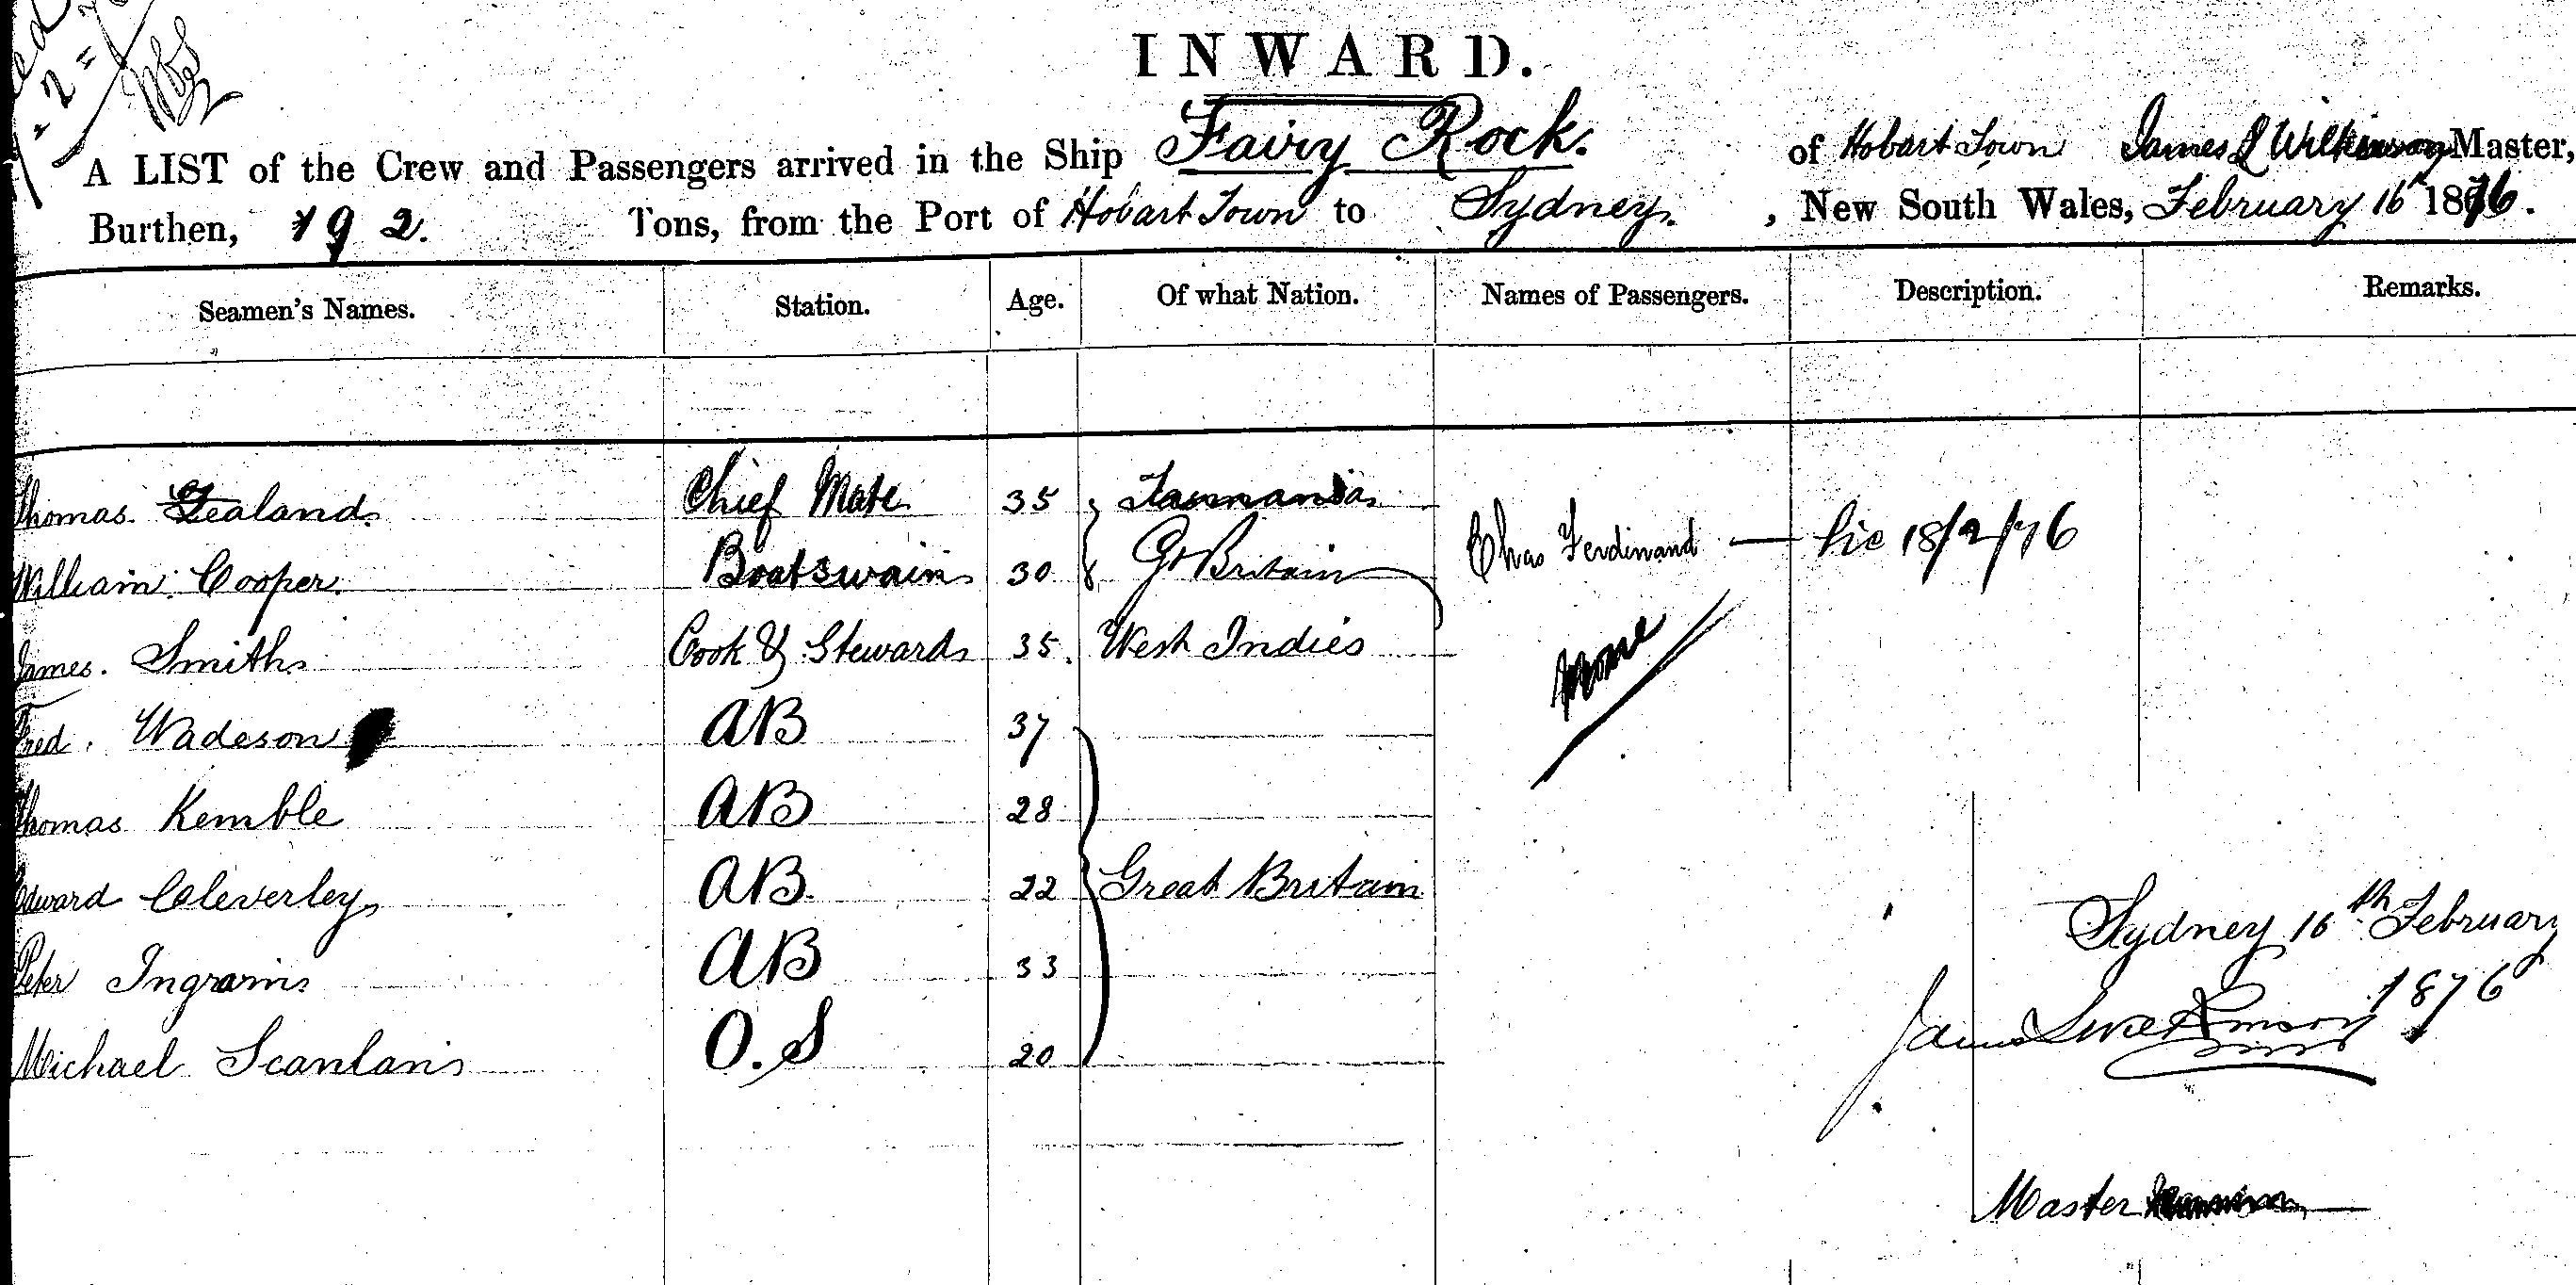 INWARD.
A LIST of the Crew and Passengers arrived in the Ship Fairy Rock. of Hobart Town James S Wilkinson Master,
Burthen, 192. Tons, from the Port of Hobart Town to Sydney. , New South Wales, February 16th 1876.
Seamen's Names. Station. Age. Of what Nation. Names of Passengers. Description. Remarks.
Thomas Zealand Chief Mate 35 Tasmania
William Cooper Boatswain 30 Gt Britain Chas Ferdinand — 18/2/76
James. Smith Cook & Steward 35. West Indies None
Fred. Wadeson AB 37
Thomas Kemble AB 28
Edward Cleverley AB. 22 Great Britain
Peter Ingram AB 33
Michael Scanlan O.S 20
Sydney 16th February
1876
Master